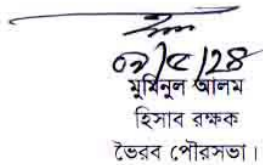 ০৯/৫/২৪
মুমিনুল আলম
হিসাব রক্ষক
ভৈরব পৌরসভা।